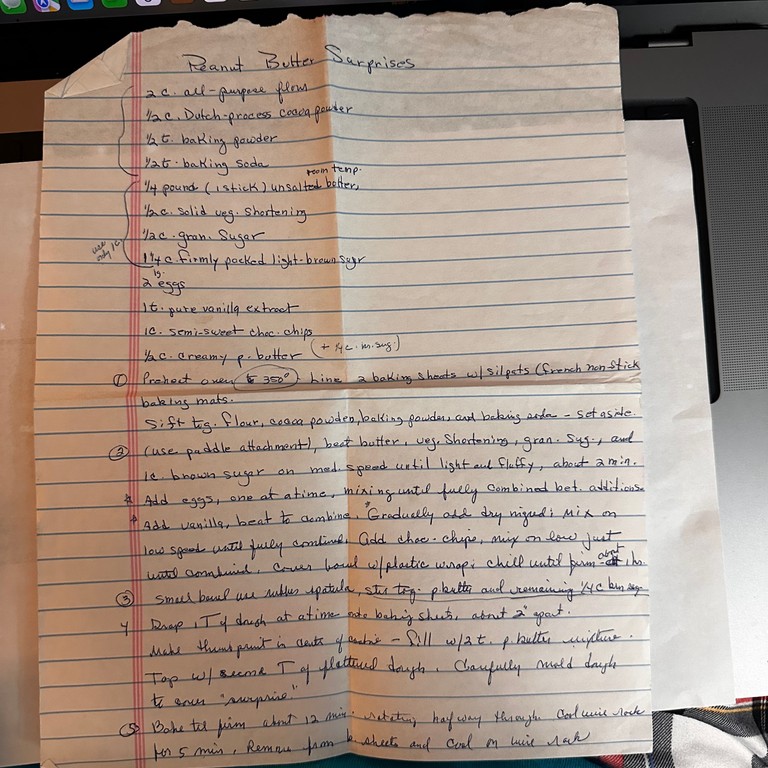 Peanut Butter Surprises
2 c. all-purpose flour
1/2 c. Dutch-process cocoa powder
1/2 t. baking powder
1/2 t. baking soda
room temp.
1/4 pound (1 stick) unsalted butter,
1/2 c. solid veg. shortening
1/2 c. gran. Sugar
use only 1c
1 1/4 c. firmly packed light-brown sugr
lg.
2 eggs
1 t. pure vanilla extract
1 c. semi-sweet choc. chips
1/2 c. creamy p. butter (+ 1/4 c. m. sug.)
① Preheat oven to 350° Line 2 baking sheets w/ silpats (french non-stick
baking mats.
Sift tog. flour, cocoa powder, baking powder, and baking soda - set aside.
② (use paddle attachment), beat butter, veg. shortening, gran. sug., and
1c. brown sugar on med. speed until light and fluffy, about 2 min.
* Add eggs, one at a time, mixing until fully combined bet. additions
* Add vanilla, beat to combine. *Gradually add dry ingred; mix on
low speed until fully combined. Add choc. chips, mix on low just
until combined. Cover bowl w/ plastic wrap; chill until firm - about 1 hr.
③ Small bowl use rubber spatula, stir tog. p butter and remaining 1/4 c brn sugr
4 Drop 1 T of dough at a time onto baking sheets, about 2" apart.
Make thumbprint in center of cookie - fill w/ 2 t. p butter mixture.
Top w/ second T of flattened dough. Carefully mold dough
to cover "surprise."
⑤ Bake til firm about 12 min. rotating halfway through. Cool wire rack
for 5 min. Remove from sheets and cool on wire rack